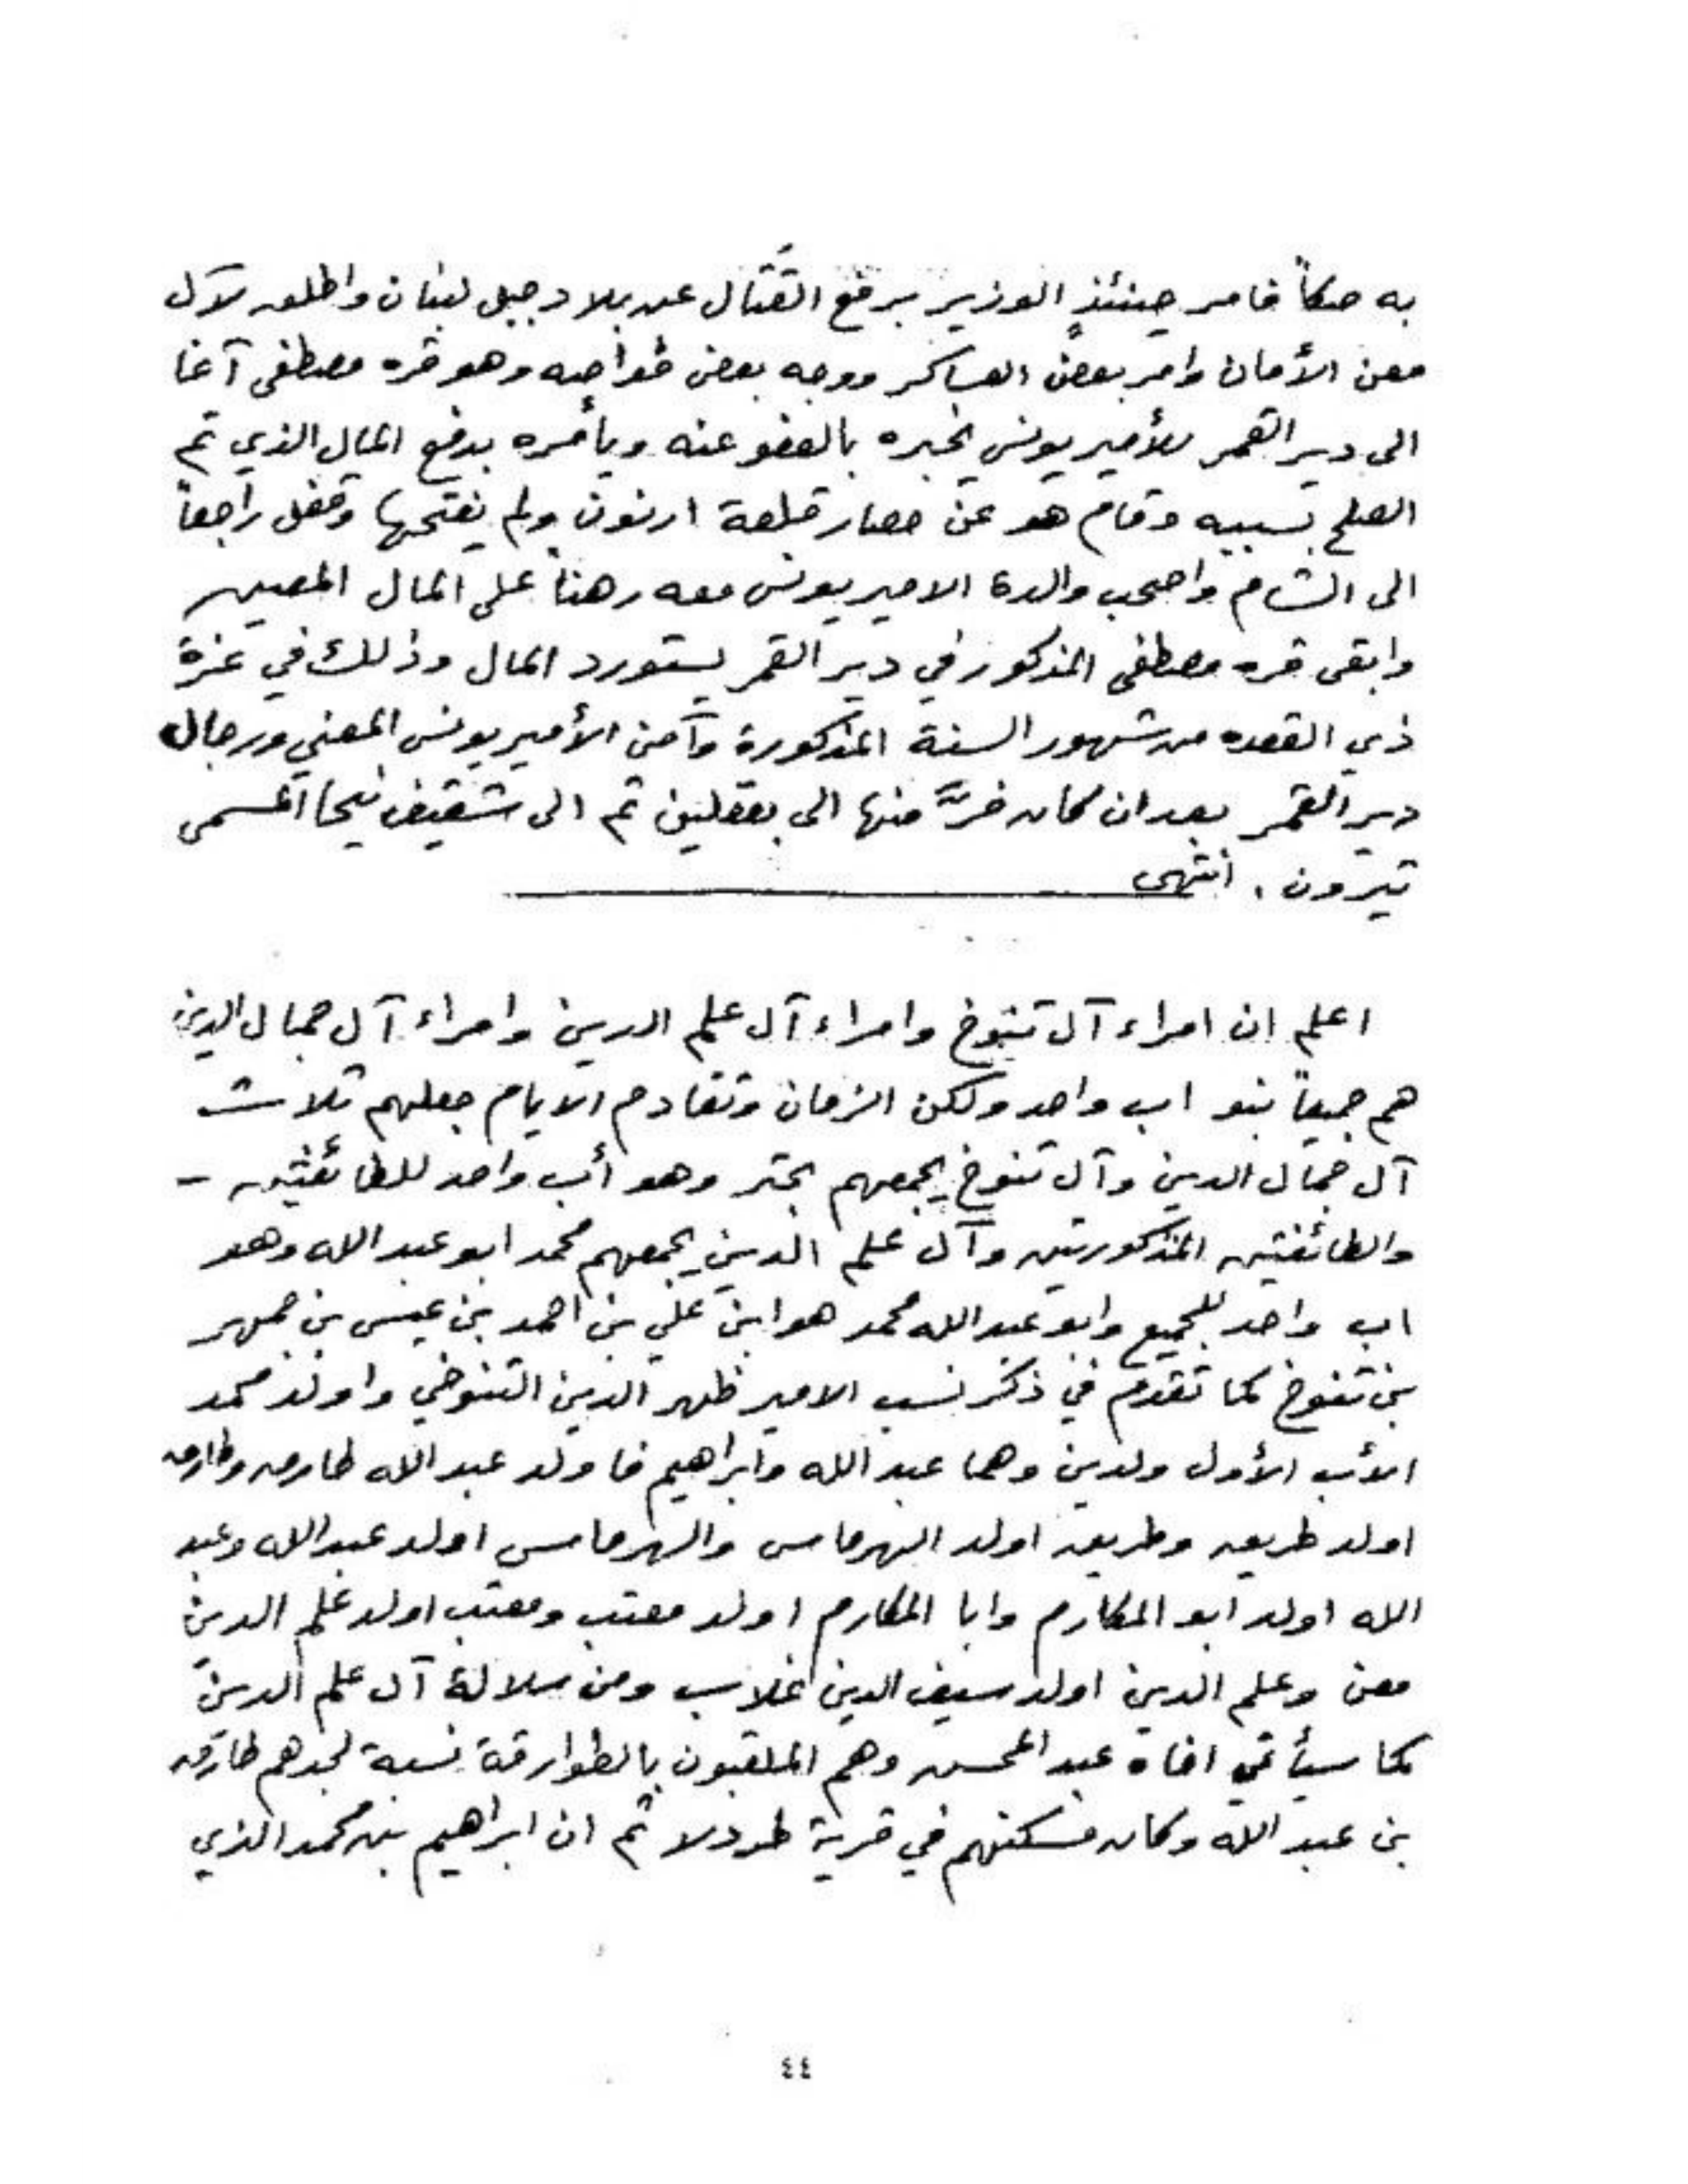 به صكاً فامر حينئذٍ الوزير برفع القتال عن بلاد جبل لبنان واطلق لآل
معن الأمان وامر بعض العساكر ووجه بعض خواصه وهو قره مصطفى آغا
الى دير القمر للأمير يونس يخبره بالعفو عنه ويأمره بدفع المال الذي تم
الصلح بسببه وقام هو عن حصار قلعة ارنون ولم يفتحها وقفل راجعاً
الى الشام واصحب والدة الامير يونس معه رهناً على المال المعين
وابقى قره مصطفى المذكور في دير القمر يستورد المال وذلك في غرة
ذي القعده من شهور السنة المذكورة وآمن الأمير يونس المعني ورجال
دير القمر بعد ان كان فرَّ منها الى بعقلين ثم الى شقيف نيحا المسمى
تيرون . انتهى
اعلم ان امراء آل تنوخ وامراء آل علم الدين وامراء آل جمال الدين
هم جميعاً بنو اب واحد ولكن الزمان وتقادم الايام جعلهم ثلاث
آل جمال الدين وآل تنوخ يجمعهم بحتر وهو أب واحد للطائفتين -
والطائفتين المذكورتين وآل علم الدين يجمعهم محمد ابو عبد الله وهو
اب واحد للجميع وابو عبد الله محمد هو ابن علي بن احمد بن عيسى بن جمهر
بن تنوخ كما تقدم في ذكر نسب الامير ظهر الدين التنوخي واولد محمد
الأب الأول ولدين وهما عبد الله وابراهيم فاولد عبد الله طارق وطارق
اولد طريق وطريق اولد الهرماس والهرماس اولد عبد الله وعبد
الله اولد ابو المكارم وابا المكارم اولد معتب ومعتب اولد علم الدين
معن وعلم الدين اولد سيف الدين غلاب ومن سلالة آل علم الدين
كما سيأتي اخاه عبد المحسن وهم الملقبون بالطوارقة نسبة لجدهم طارق
بن عبد الله وكان مسكنهم في قرية طردلا ثم ان ابراهيم بن محمد الذي
٤٤